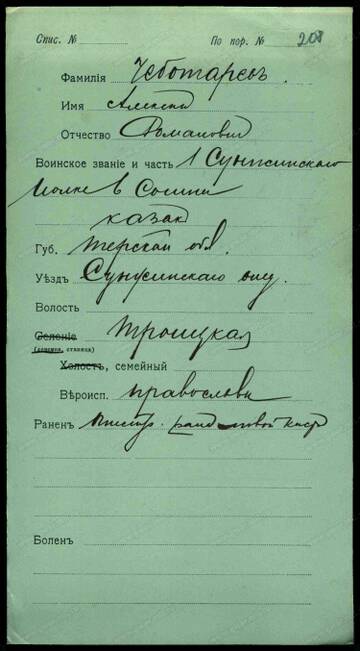 Спис. № По пор. № 208
Фамилія Чеботаревъ.
Имя Алексей
Отчество Романовичъ
Воинское званіе и часть 1 Сунженскаго
Полка 6 Сотни
казак
Губ. Терской обл.
Уѣздъ Сунженскаго
Волость
Селеніе Троицкая
(деревня, станица)
Холостъ, семейный
Вѣроисп. православн
Раненъ левой кисти
Боленъ